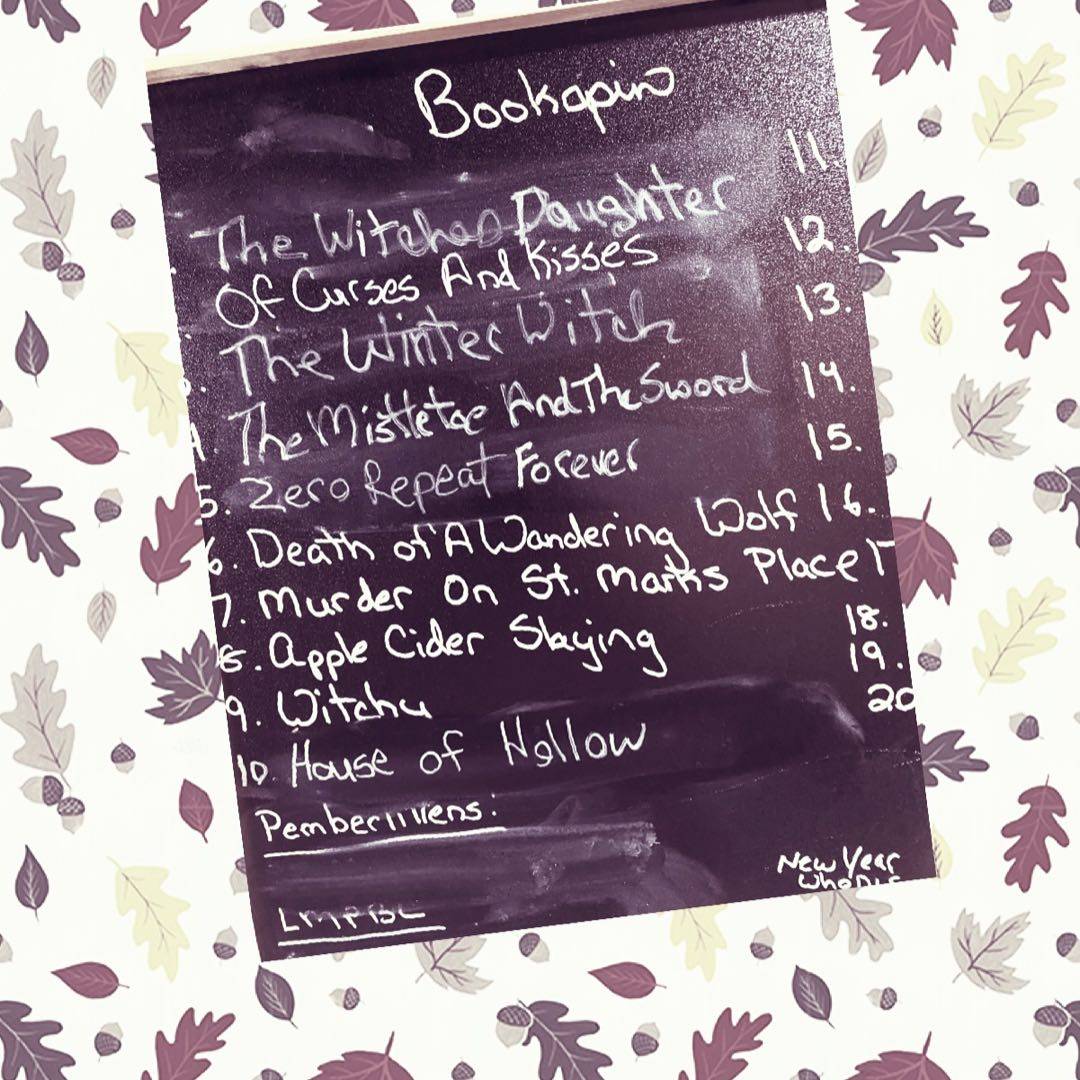 Bookopin
11.
The Witches Daughter
Of Curses And Kisses 12.
3. The Winter Witch 13.
4. The Mistletoe And The Sword 14.
5. Zero Repeat Forever 15.
6. Death of A Wandering Wolf 16.
7. Murder On St. Marks Place 17
8. Apple Cider Slaying 18.
9. Witchy 19.
10. House of Hollow 20
New Year
LMPBC